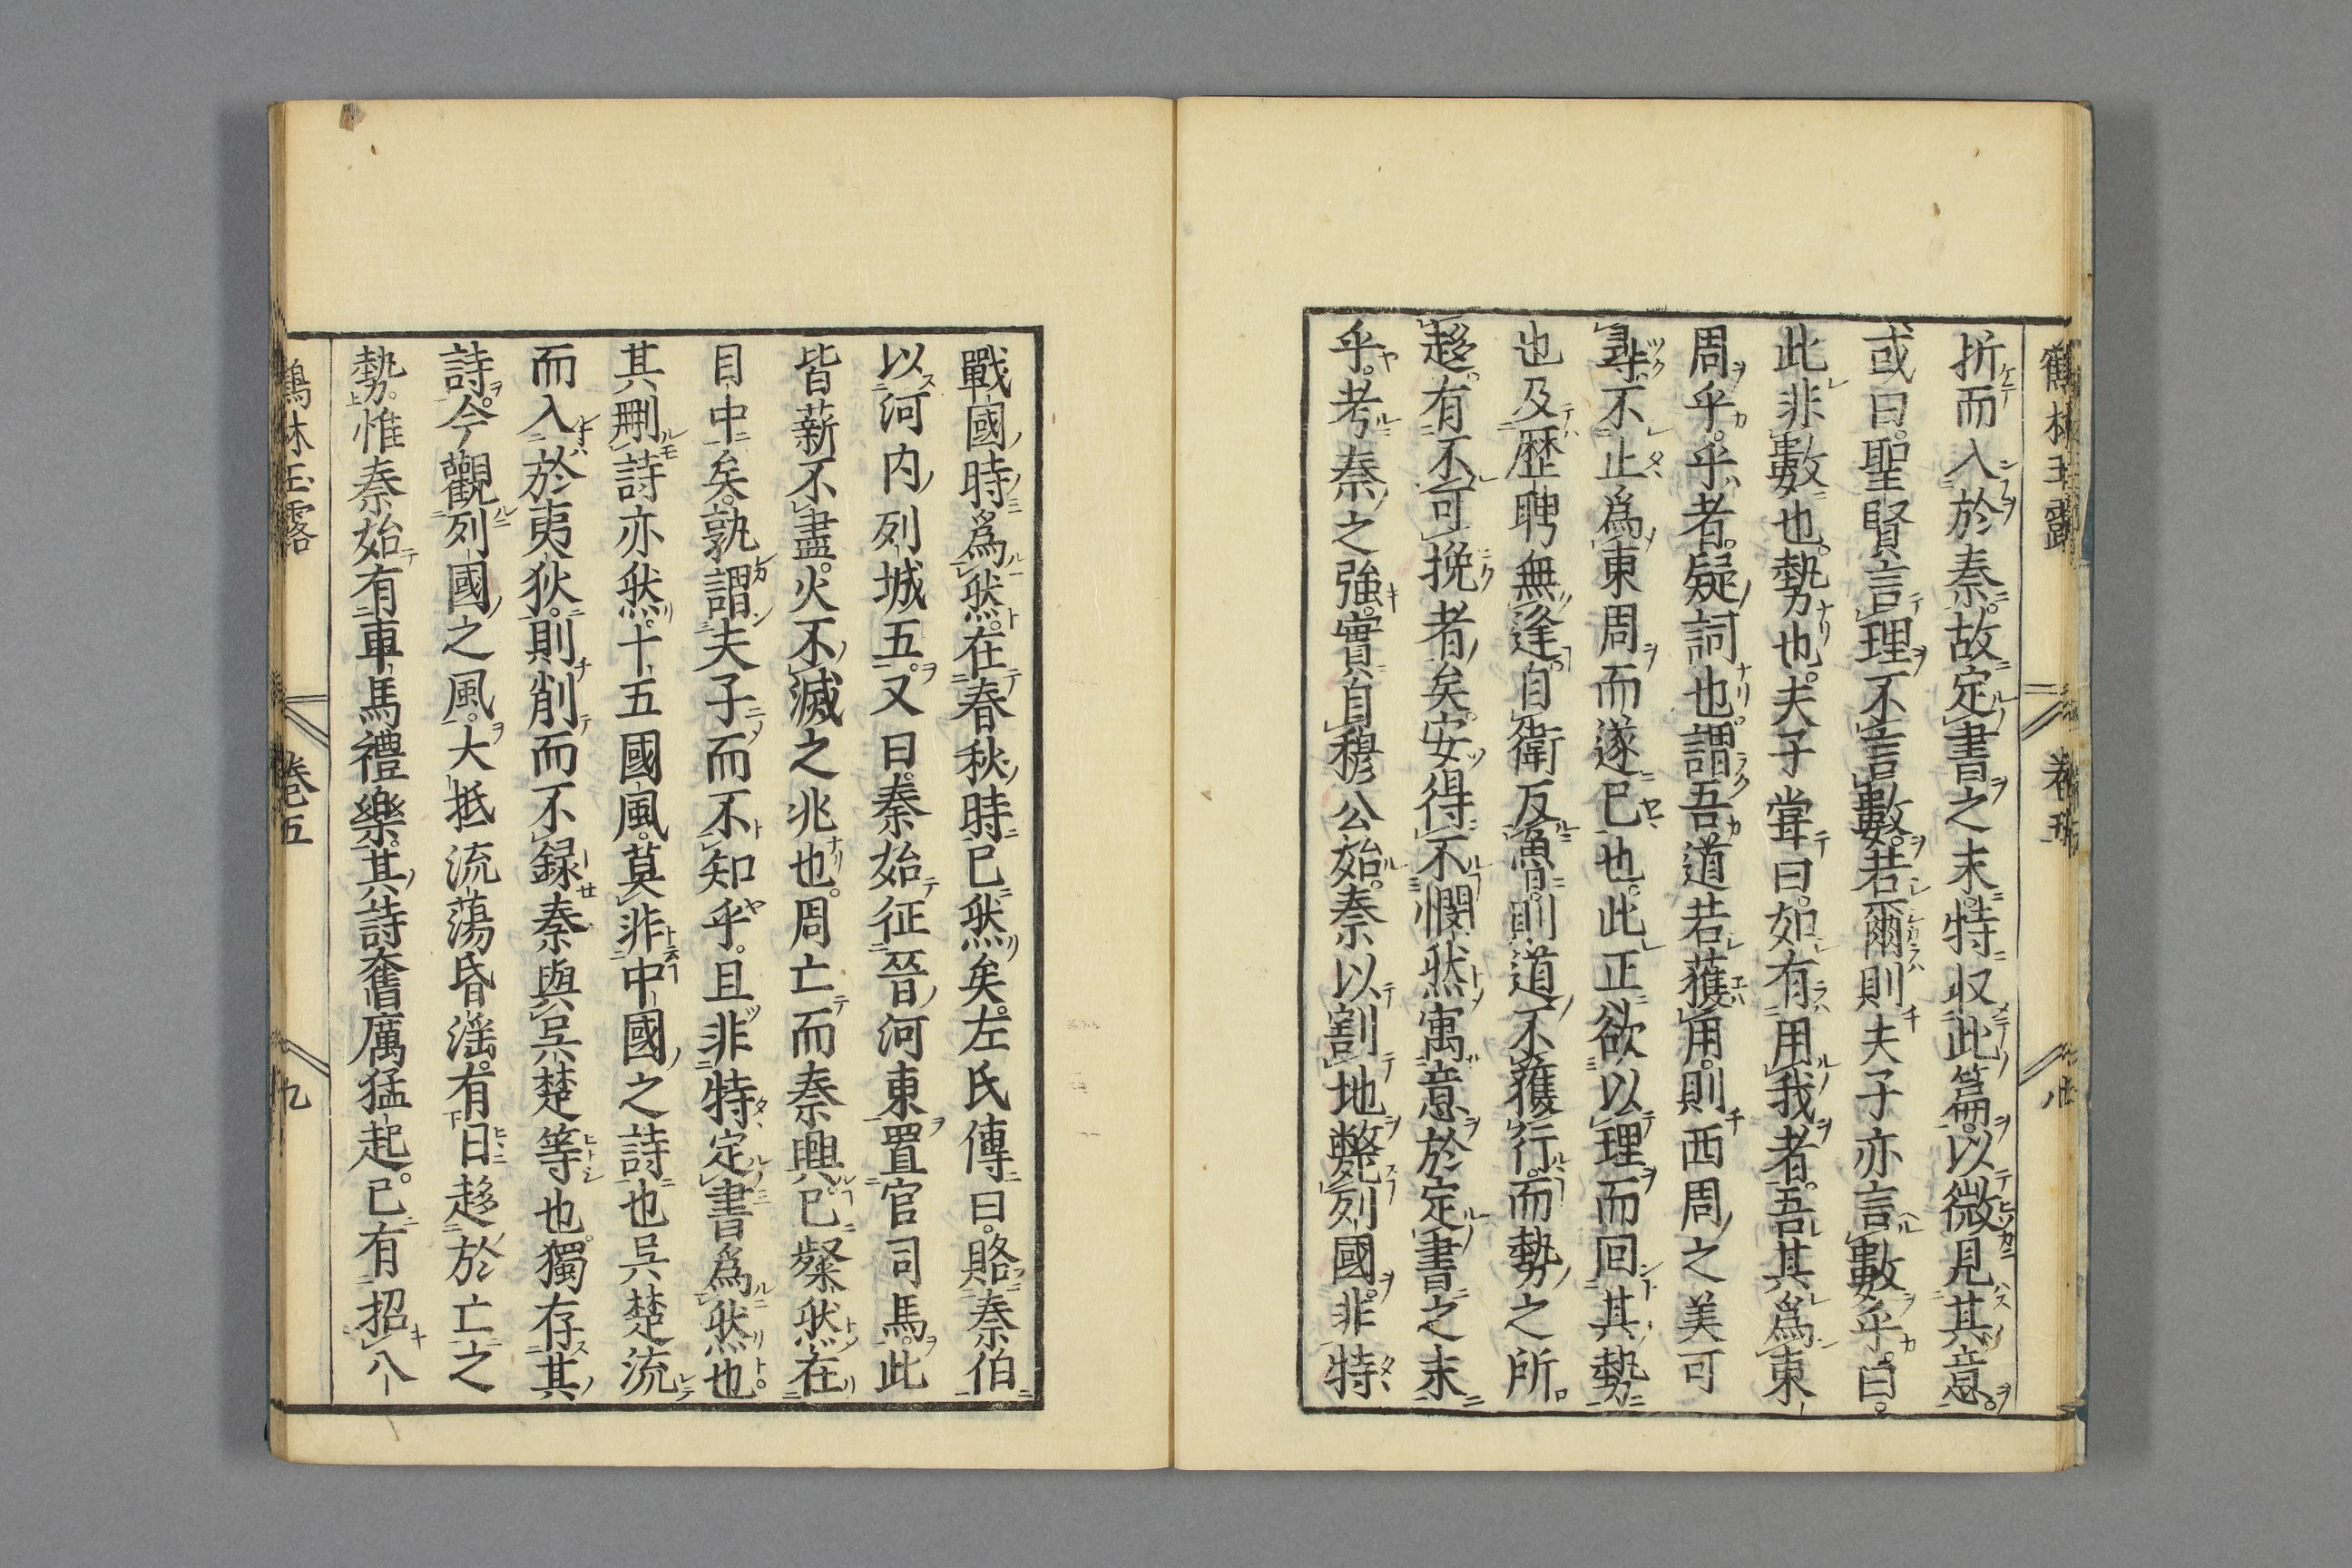 鶴林玉露 卷五 八
折而入於秦。故定書之末。特収此篇。以微見其意。
或曰。聖賢言理不言數。若爾則夫子亦言數乎。曰。
此非數也。勢也。夫子甞曰。如有用我者。吾其爲東
周乎。乎者。疑詞也。謂吾道若獲用。則西周之美可
尋。不止爲東周而遂已也。此正欲以理而回其勢
也及歷聘無逢。自衛反魯。則道不獲行。而勢之所
趍。有不可挽者矣。安得不憫然寓意於定書之末
乎。考秦之強。實自穆公始。秦以割地弊列國。非特
戰國時爲然。在春秋時已然矣。左氏傳曰。賂秦伯
以河內列城五。又曰。秦始征晉河東置官司馬。此
皆薪不盡。火不滅之兆也。周亡而秦興。已粲然在
目中矣。孰謂夫子而不知乎。且非特定書爲然也。
其刪詩亦然。十五國風。莫非中國之詩也吳楚流
而入於夷狄。則削而不錄秦與吳楚等也。獨存其
詩。今觀列國之風。大抵流蕩昏淫。有日趍於亡之
勢。惟秦始有車馬禮樂。其詩奮厲猛起。已有招八
鶴林玉露 卷五 九